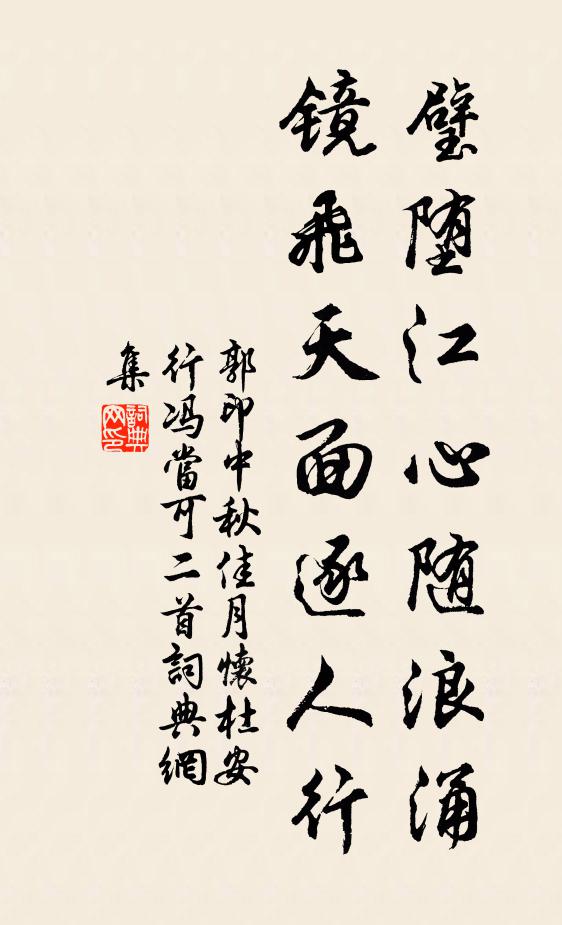 璧堕江心随浪涌
镜飛天面逐人行
郭印中秋佳月懷杜安
行冯當可二首詞典網
集
詞典
网印